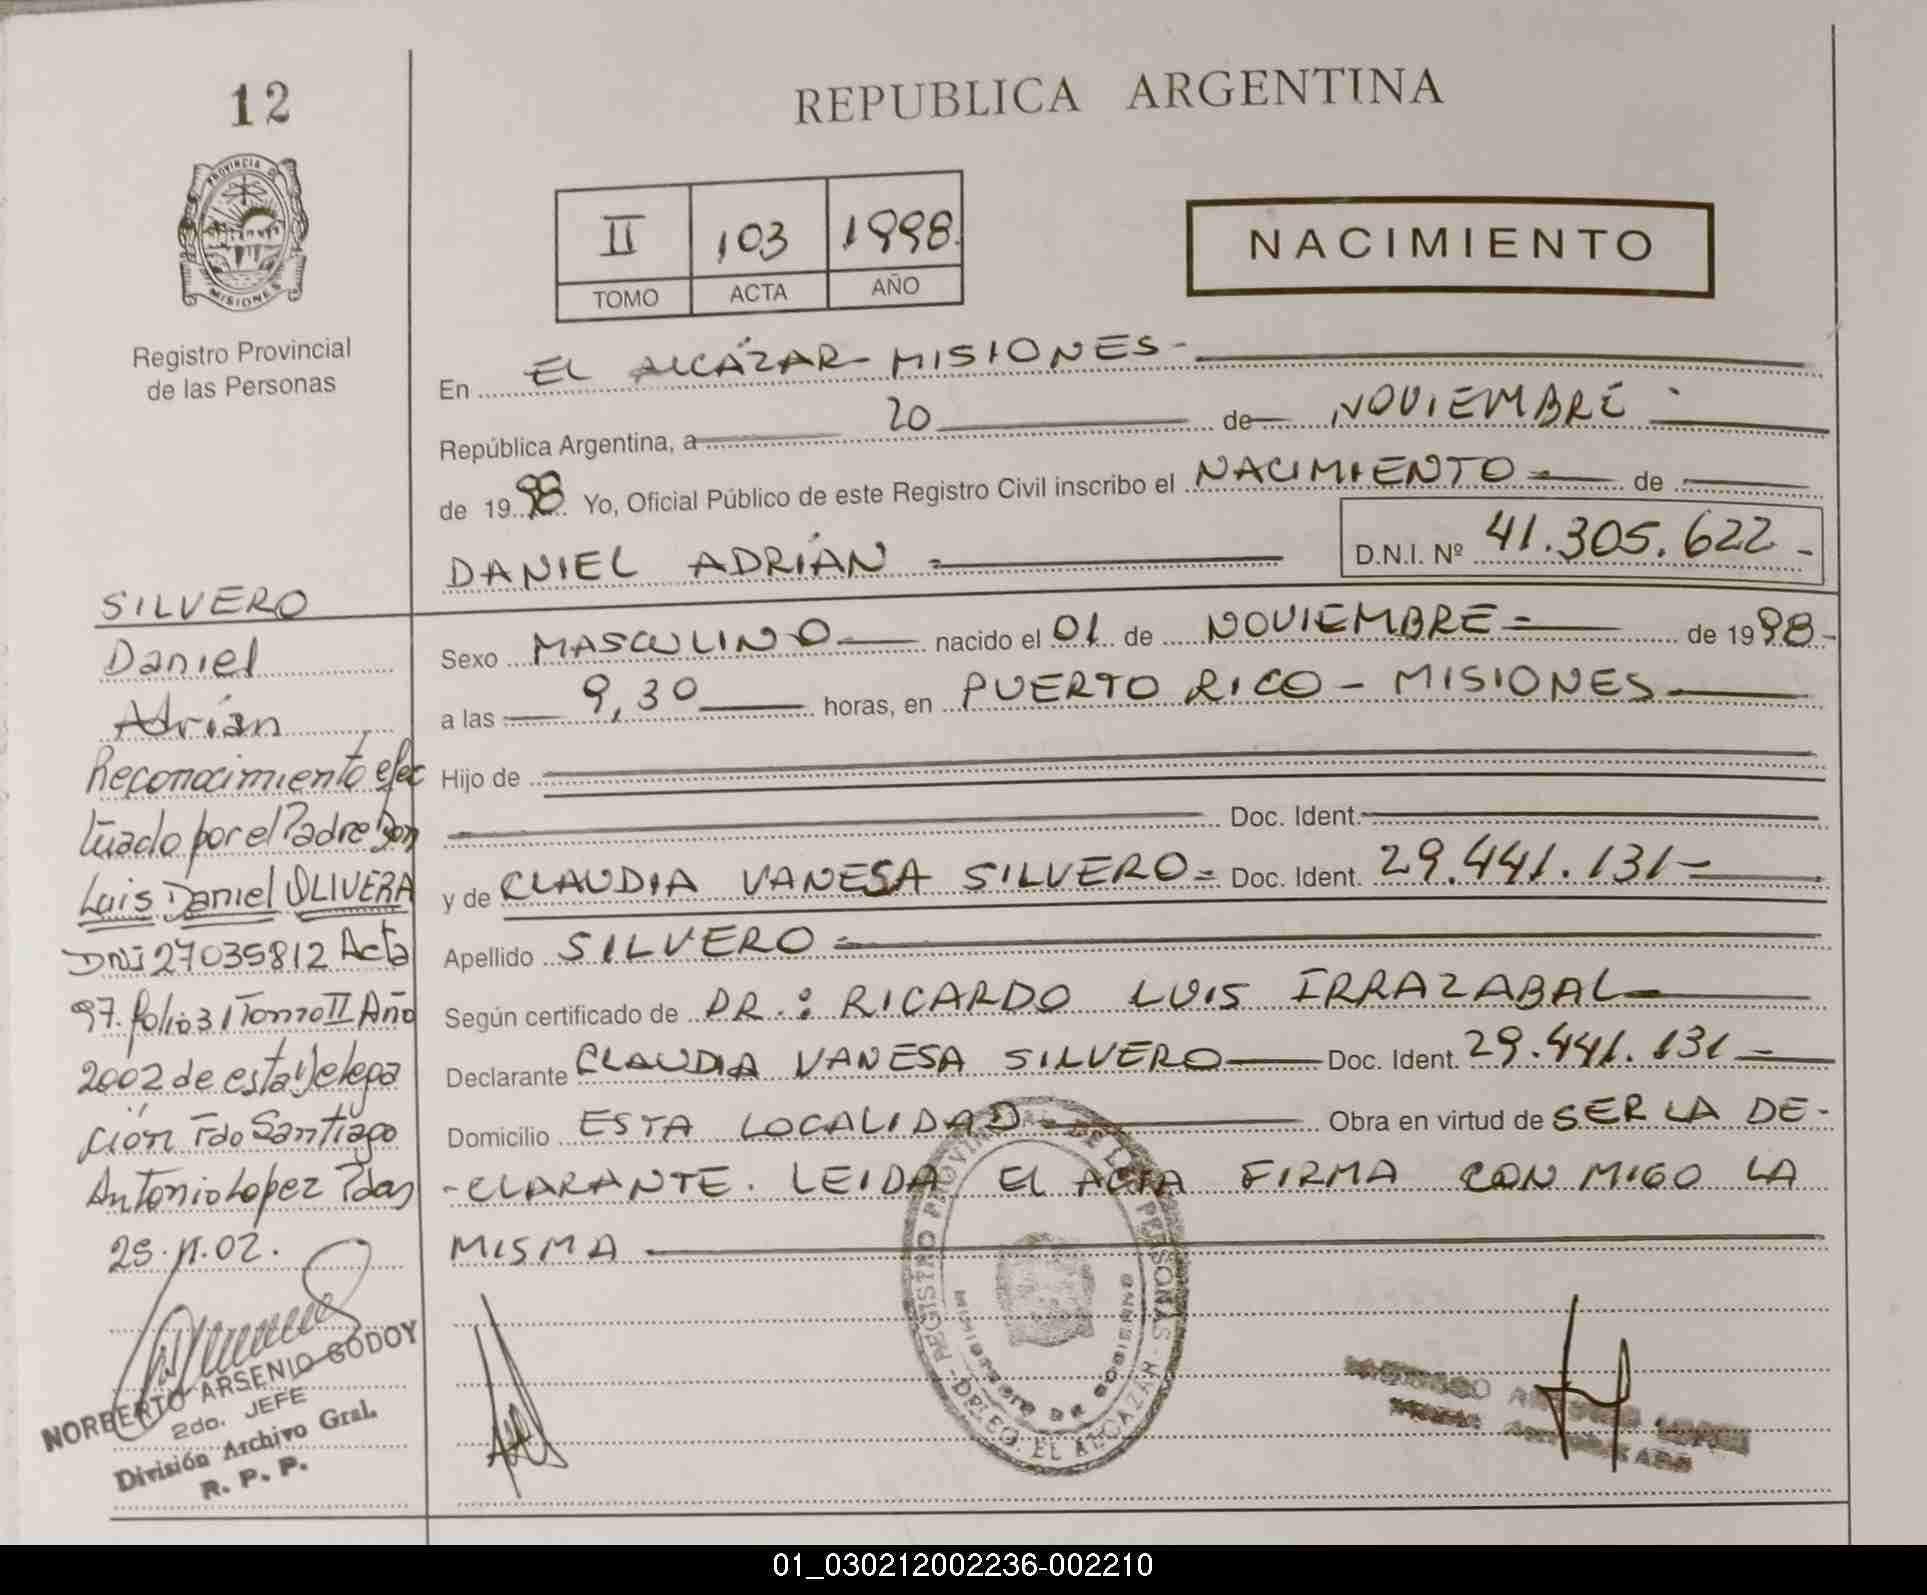 12
PROVINCIA DE
MISIONES
Registro Provincial
de las Personas
REPUBLICA ARGENTINA
II 103 1998
TOMO ACTA AÑO
NACIMIENTO
En EL ALCÁZAR - MISIONES -
República Argentina, a 20 de NOVIEMBRE
de 1998 Yo, Oficial Público de este Registro Civil inscribo el NACIMIENTO de
DANIEL ADRIÁN D.N.I. Nº 41.305.622 -
Sexo MASCULINO nacido el 01 de NOVIEMBRE de 1998 -
a las 9,30 horas, en PUERTO RICO - MISIONES
Hijo de
Doc. Ident.
y de CLAUDIA VANESA SILVERO = Doc. Ident. 29.441.131 -
Apellido SILVERO
Según certificado de DR.: RICARDO LUIS IRRAZABAL
Declarante CLAUDIA VANESA SILVERO Doc. Ident. 29.441.131 -
Domicilio ESTA LOCALIDAD Obra en virtud de SER LA DE-
-CLARANTE. LEIDA EL ACTA FIRMA CON MIGO LA
MISMA
SILVERO
Daniel
Adrián
Reconocimiento efec
tuado por el Padre Don
Luis Daniel OLIVERA
DNI 27035812 Acta
97. folio 31 Tomo II Año
2002 de esta Delega
ción Fdo Santiago
Antonio Lopez Pdas
25.11.02.
NORBERTO ARSENIO GODOY
2do. JEFE
División Archivo Gral.
R. P. P.
REGISTRO PROVINCIAL DE LAS PERSONAS
MINISTERIO DE GOBIERNO
DELEG. EL ALCAZAR
01_030212002236-002210